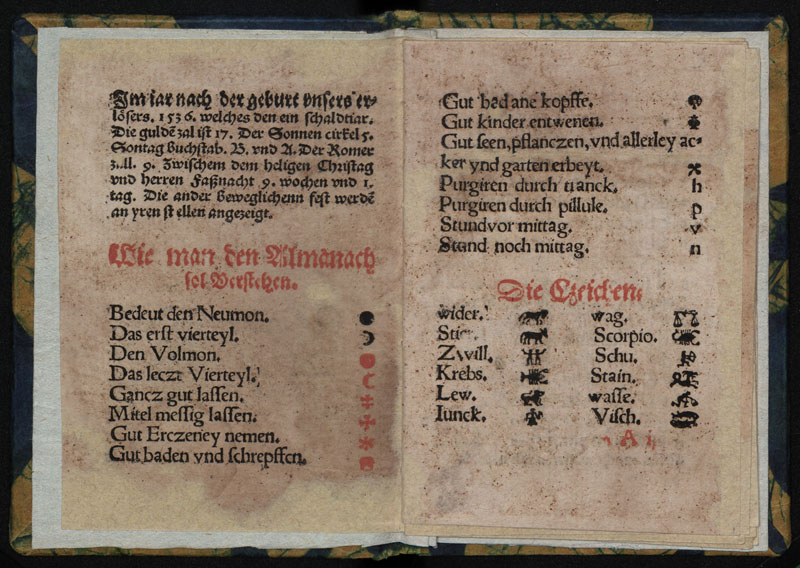 Im iar nach der geburt vnsers er-
lösers. 1536. welches den ein schaltiar.
Die guldē zal ist 17. Der Sonnen cirkel 5.
Sontag buchstab. B. vnd A. Der Romer
z.ll. 9. Zwischem dem heligen Christag
vnd herren Faßnacht 9. wochen vnd 1.
tag. Die ander beweglichenn fest werdē
an yren st ellen angezeigt.
Wie man den Almanach
sol Verstehen.
Bedeut den Neumon.
Das erst vierteyl.
Den Volmon.
Das leczt Vierteyl.
Gancz gut lassen.
Mitel messig lassen.
Gut Erczeney nemen.
Gut baden vnd schrepffen.
Gut bad ane kopffe.
Gut kinder entwenen.
Gut seen, pflanczen, vnd allerley ac-
ker vnd garten erbeyt.
Purgiren durch tranck. h
Purgiren durch pillule. p
Stund vor mittag. v
Stund noch mittag. n
Die Czeichen
wider. wag.
Stier. Scorpio.
Zwill. Schu.
Krebs. Stain.
Lew. wasse.
Iunck. Visch.
A